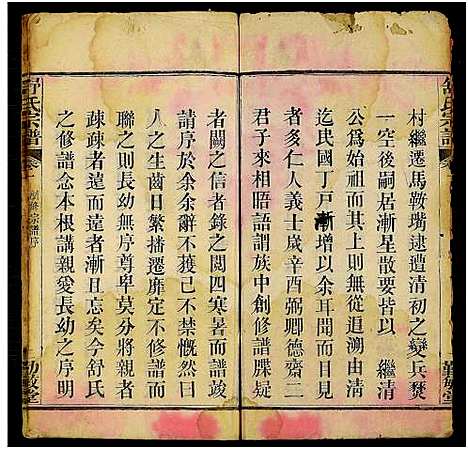 舒氏宗譜
村繼遷馬鞍嘴逮遭清初之變兵燹
一空後嗣居漸星散要皆以　繼清
公為始祖而其上則無從追溯由清
迄民國丁戸漸增以余耳聞而目見
者多仁人義士歲辛酉弼卿德齋二
君子來相晤語謂族中創修譜牒疑
勤敏堂
者闕之信者錄之閲四寒暑而譜竣
請序於余余辭不獲已不禁慨然曰
人之生齒日繁播遷靡定不修譜而
聯之則長幼無序尊卑莫分將親者
疎疎者遠而遠者漸且忘矣今舒氏
之修譜念本根講親愛長幼之序明
舒氏宗譜
創修宗譜序
勤敏堂